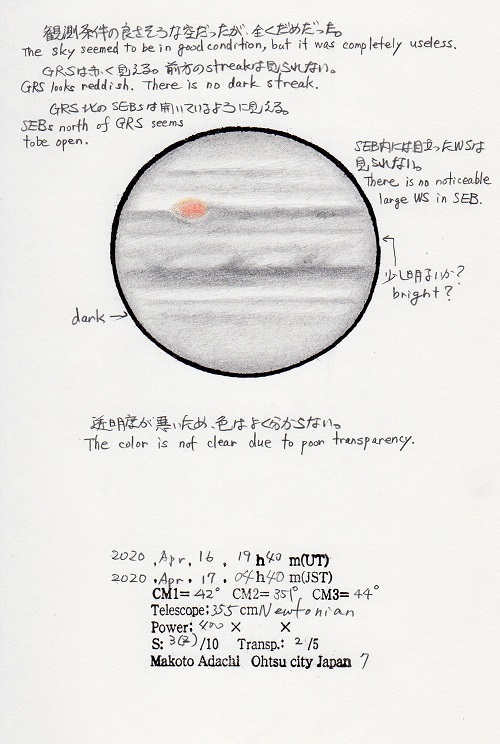 観測条件の良さそうな空だったが、全くだめだった。
The sky seemed to be in good condition, but it was completely useless.
GRSは赤く見える。前方のstreakは見られない。
GRS looks reddish. There is no dark streak.
GRS北のSEBsは開いているように見える。
SEBs north of GRS seems
to be open.
SEB内には目立ったWSは
見られない。
There is no noticeable
large WS in SEB.
少し明るいか?
bright?
dark
透明度が悪いため、色はよく分からない。
The color is not clear due to poor transparency.
2020 . Apr. 16 . 19 h 40 m(UT)
2020 . Apr. 17 . 04 h 40 m(JST)
CM1= 42° CM2= 351° CM3= 44°
Telescope: 355 cm Newtonian
Power: 400 × ×
S: 3(2)/10 Transp.: 2/5
Makoto Adachi Ohtsu city Japan 7